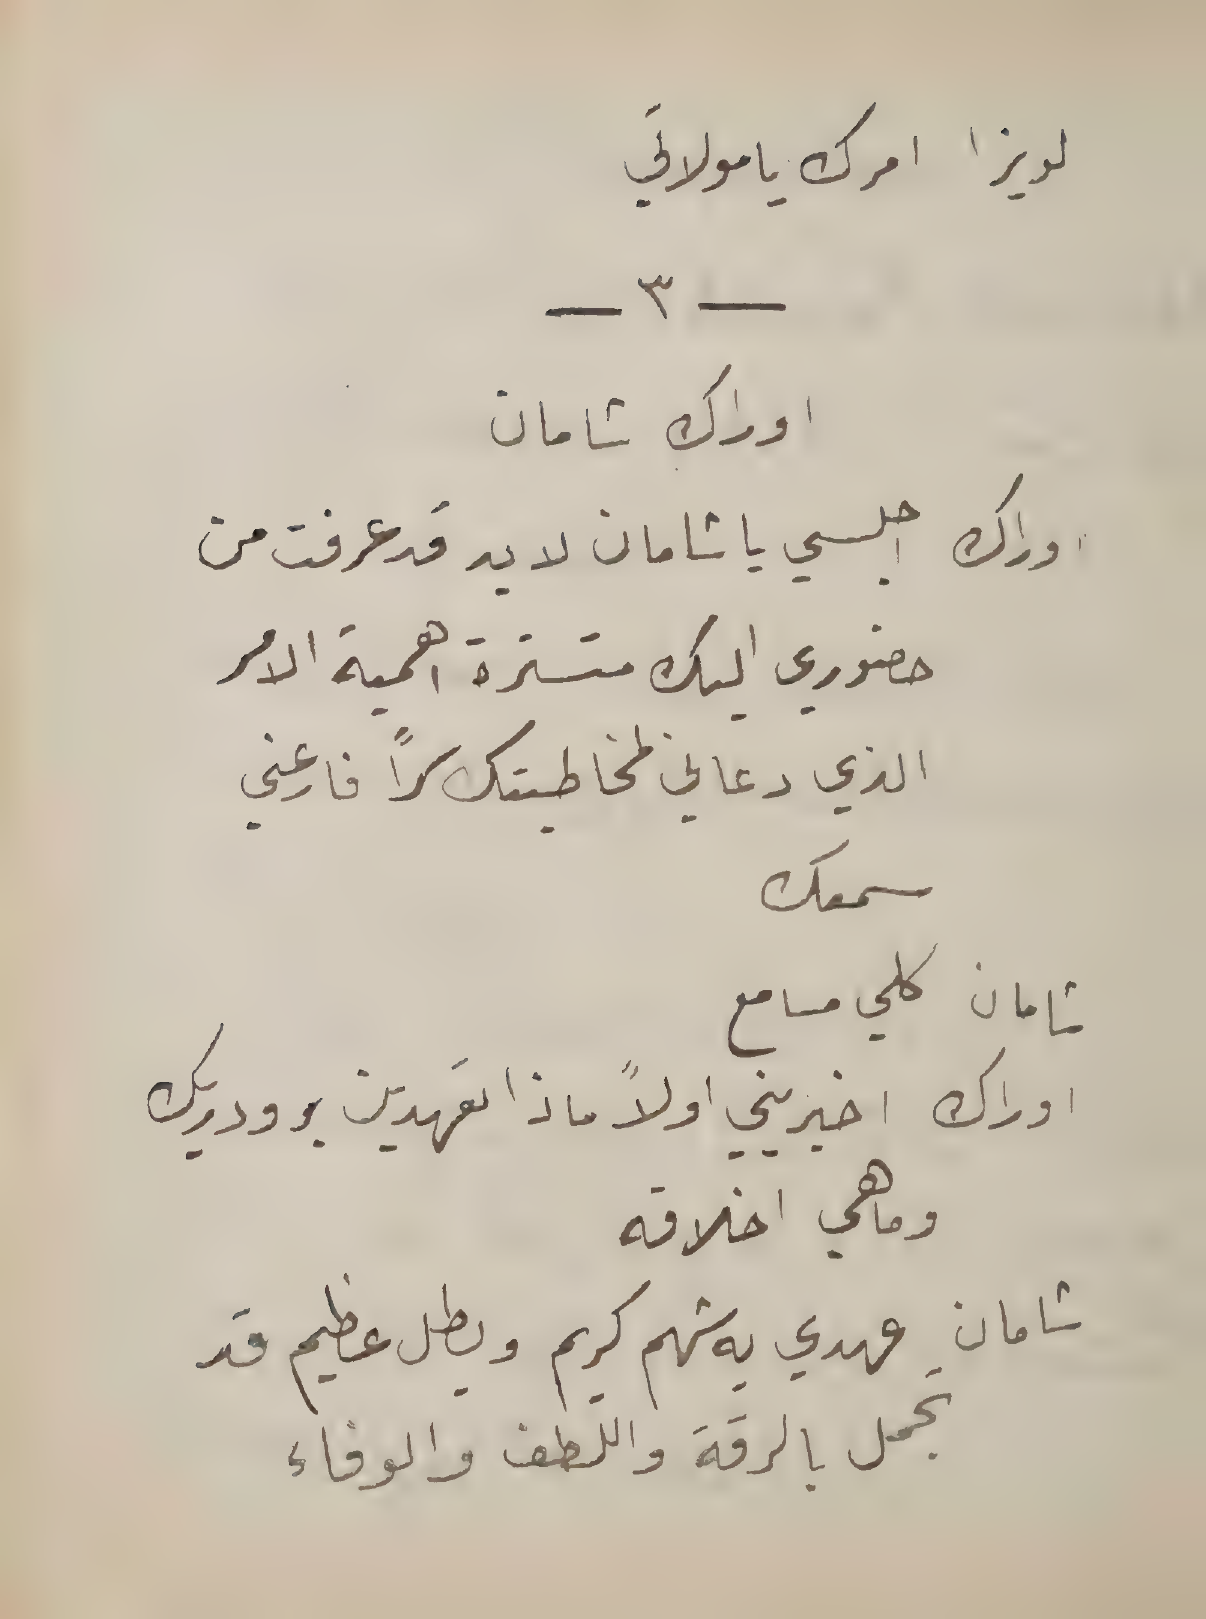 لويزا امرك يا مولاتي
— ٣ —
اوراك شامان
اوراك اجلسي يا شامان لا بد قد عرفت من
حضوري اليك متسترة اهمية الامر
الذي دعاني لمخاطبتك سراً فارعني
سمعك
شامان كلي مسامع
اوراك اخبريني اولاً ماذا تعهدين برودريك
وما هي اخلاقه
شامان عهدي به شهم كريم وبطل عظيم قد
تجمل بالرقة واللطف والوفاء